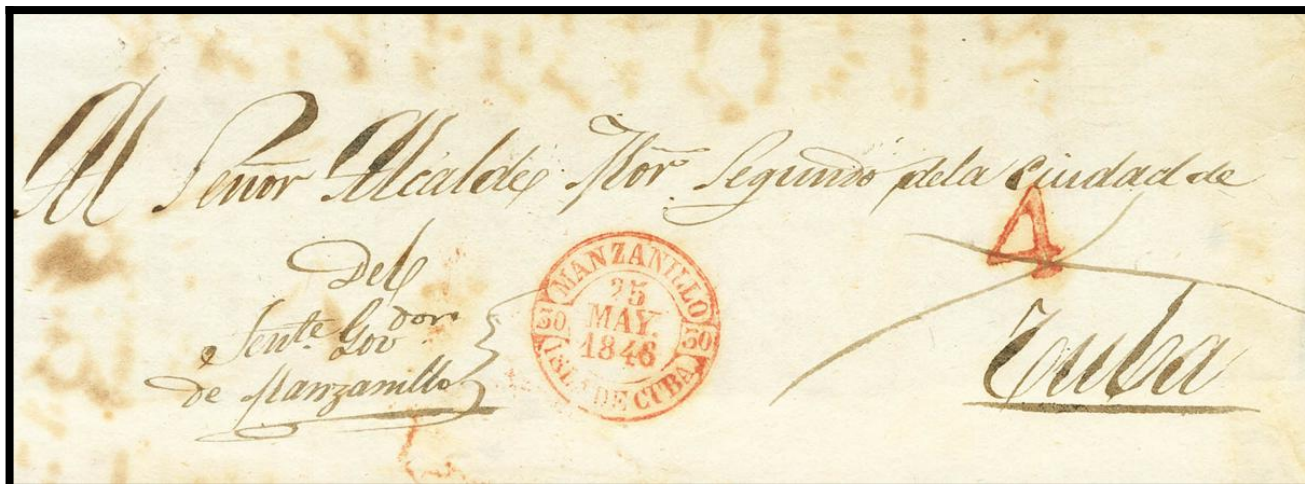 Al Señor Alcalde Mor Segundo dela Ciudad de
4
Del
Tente Govdor
de Manzanillo
MANZANILLO
30
25
MAY.
1846
30
ISLA DE CUBA
Cuba